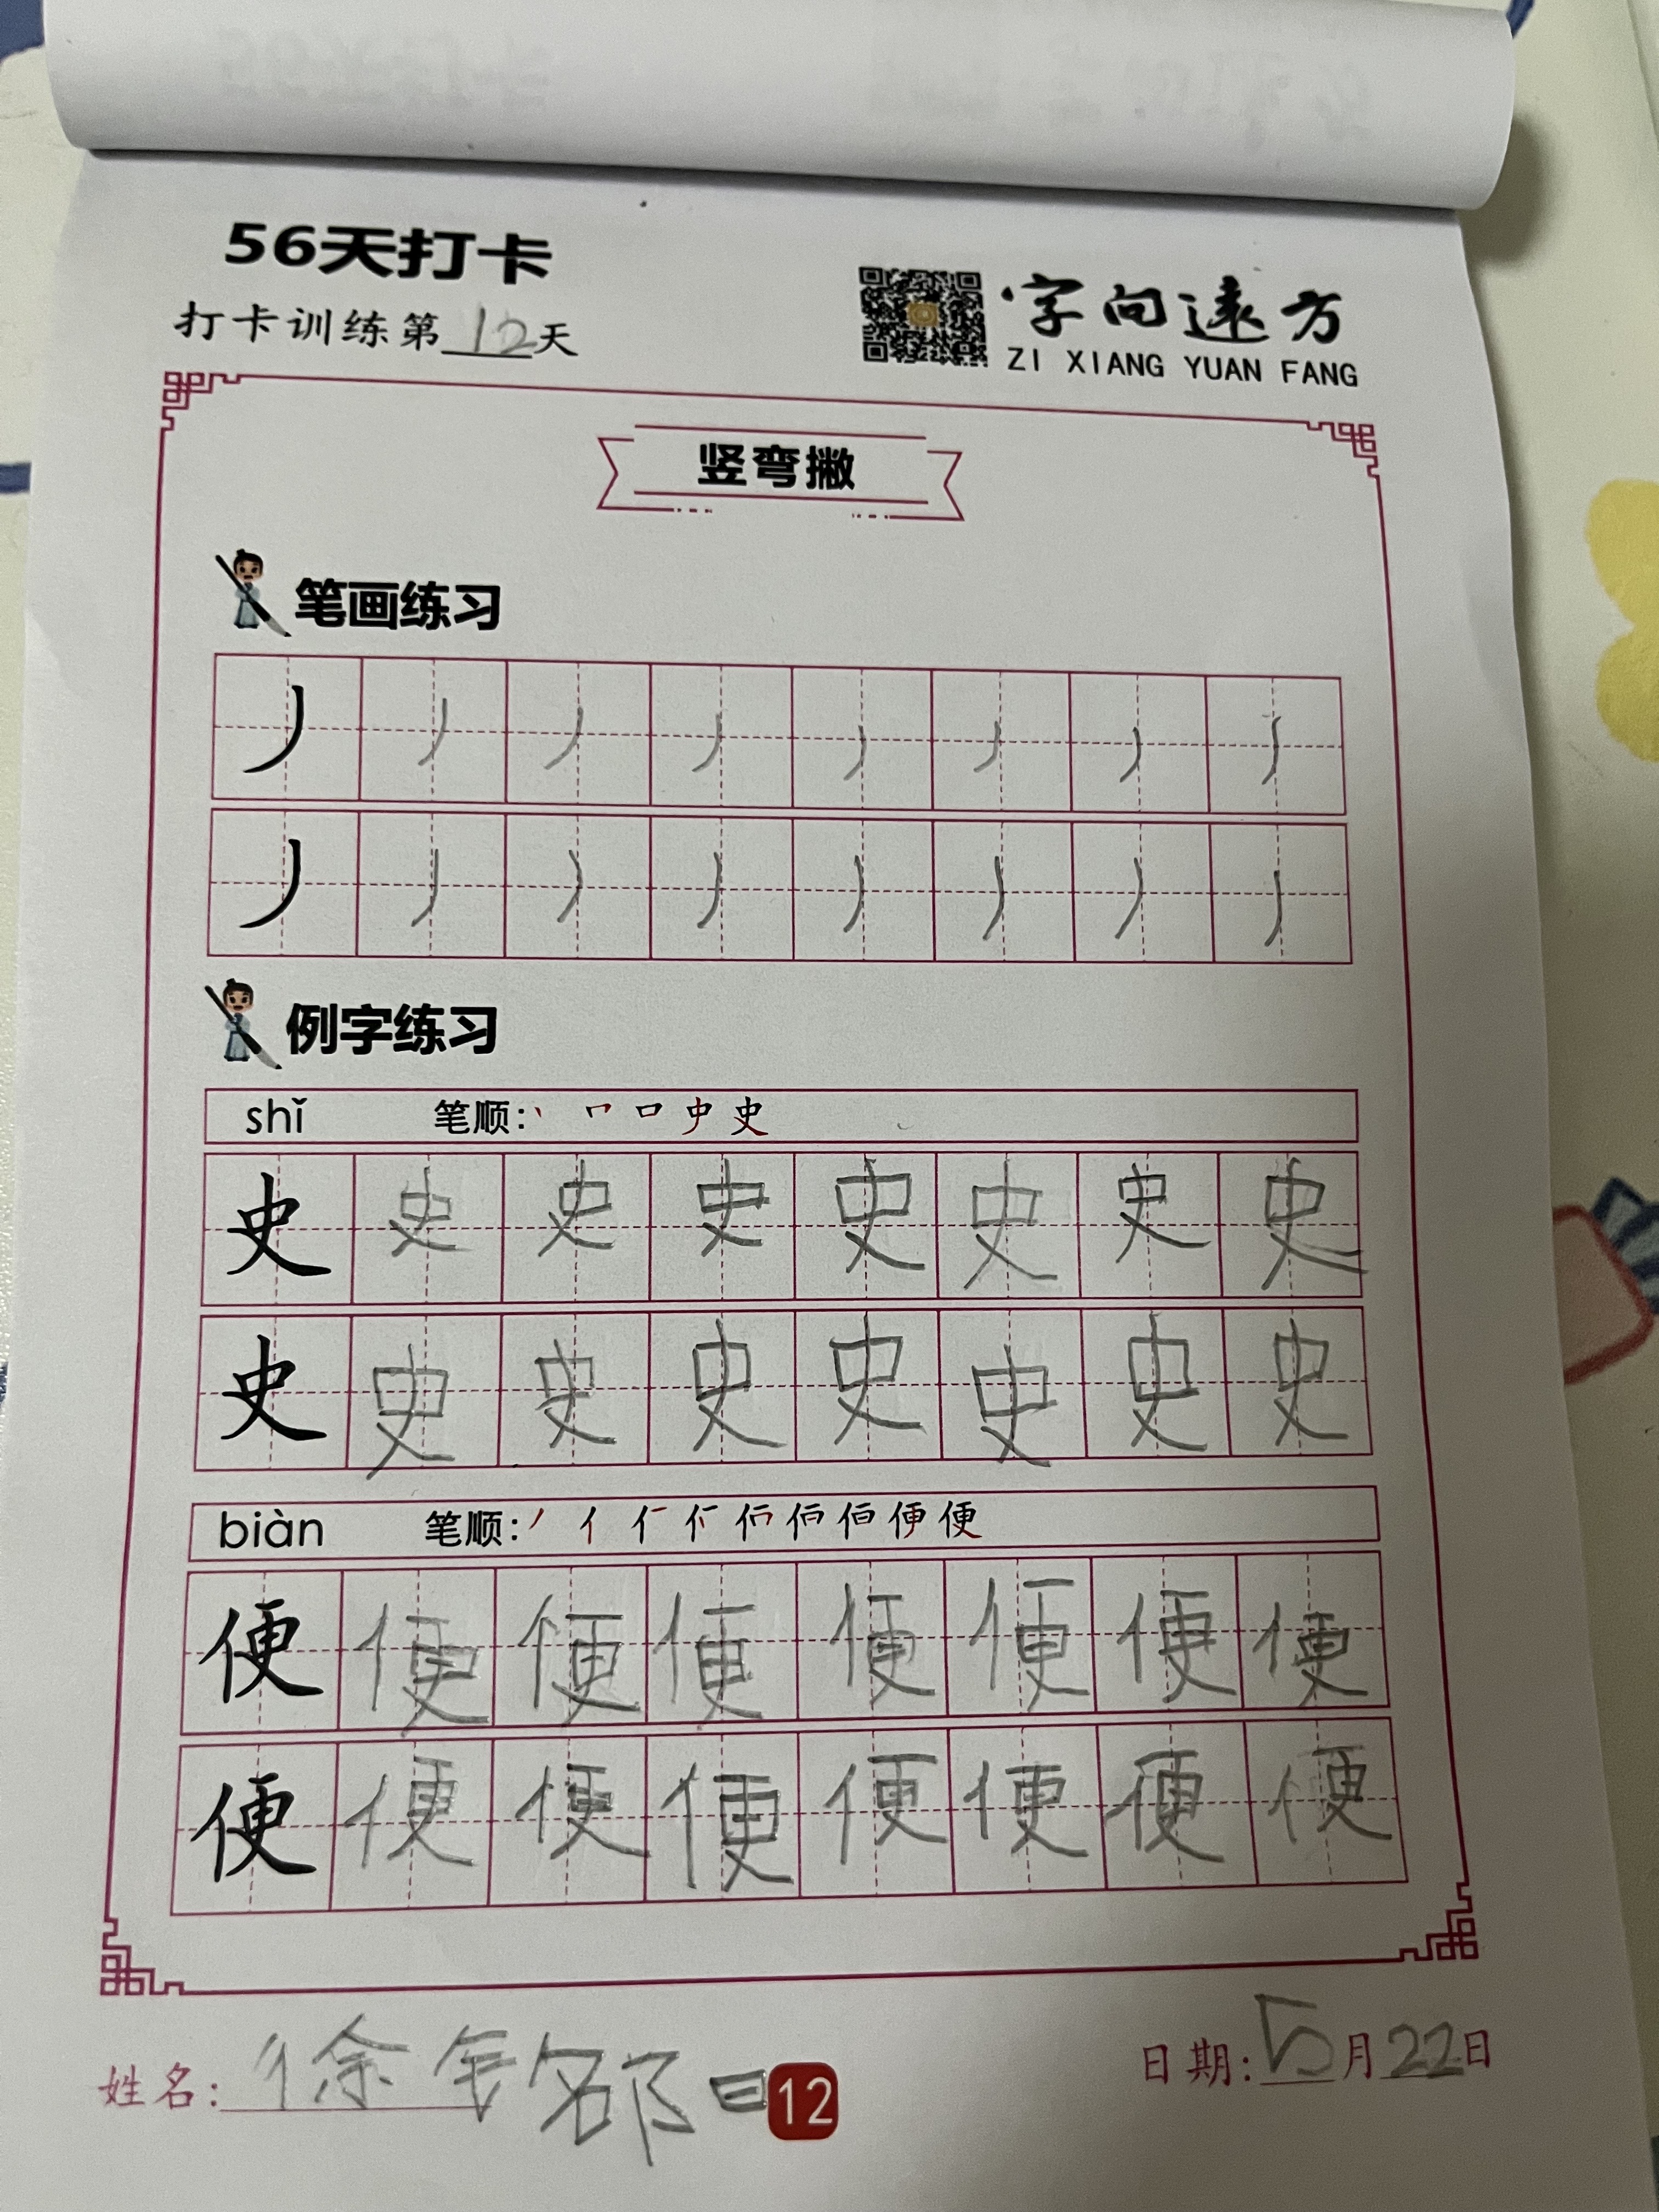 56天打卡
打卡训练第12天
字向遠方
ZI XIANG YUAN FANG
竖弯撇
笔画练习
丿 丿 丿 丿 丿 丿 丿 丿
丿 丿 丿 丿 丿 丿 丿 丿
例字练习
shǐ 笔顺:
史 史 史 史 史 史 史 史
史 史 史 史 史 史 史 史
biàn 笔顺:
便 便 便 便 便 便 便 便
便 便 便 便 便 便 便 便
姓名: 徐
12
日期: 5月22日